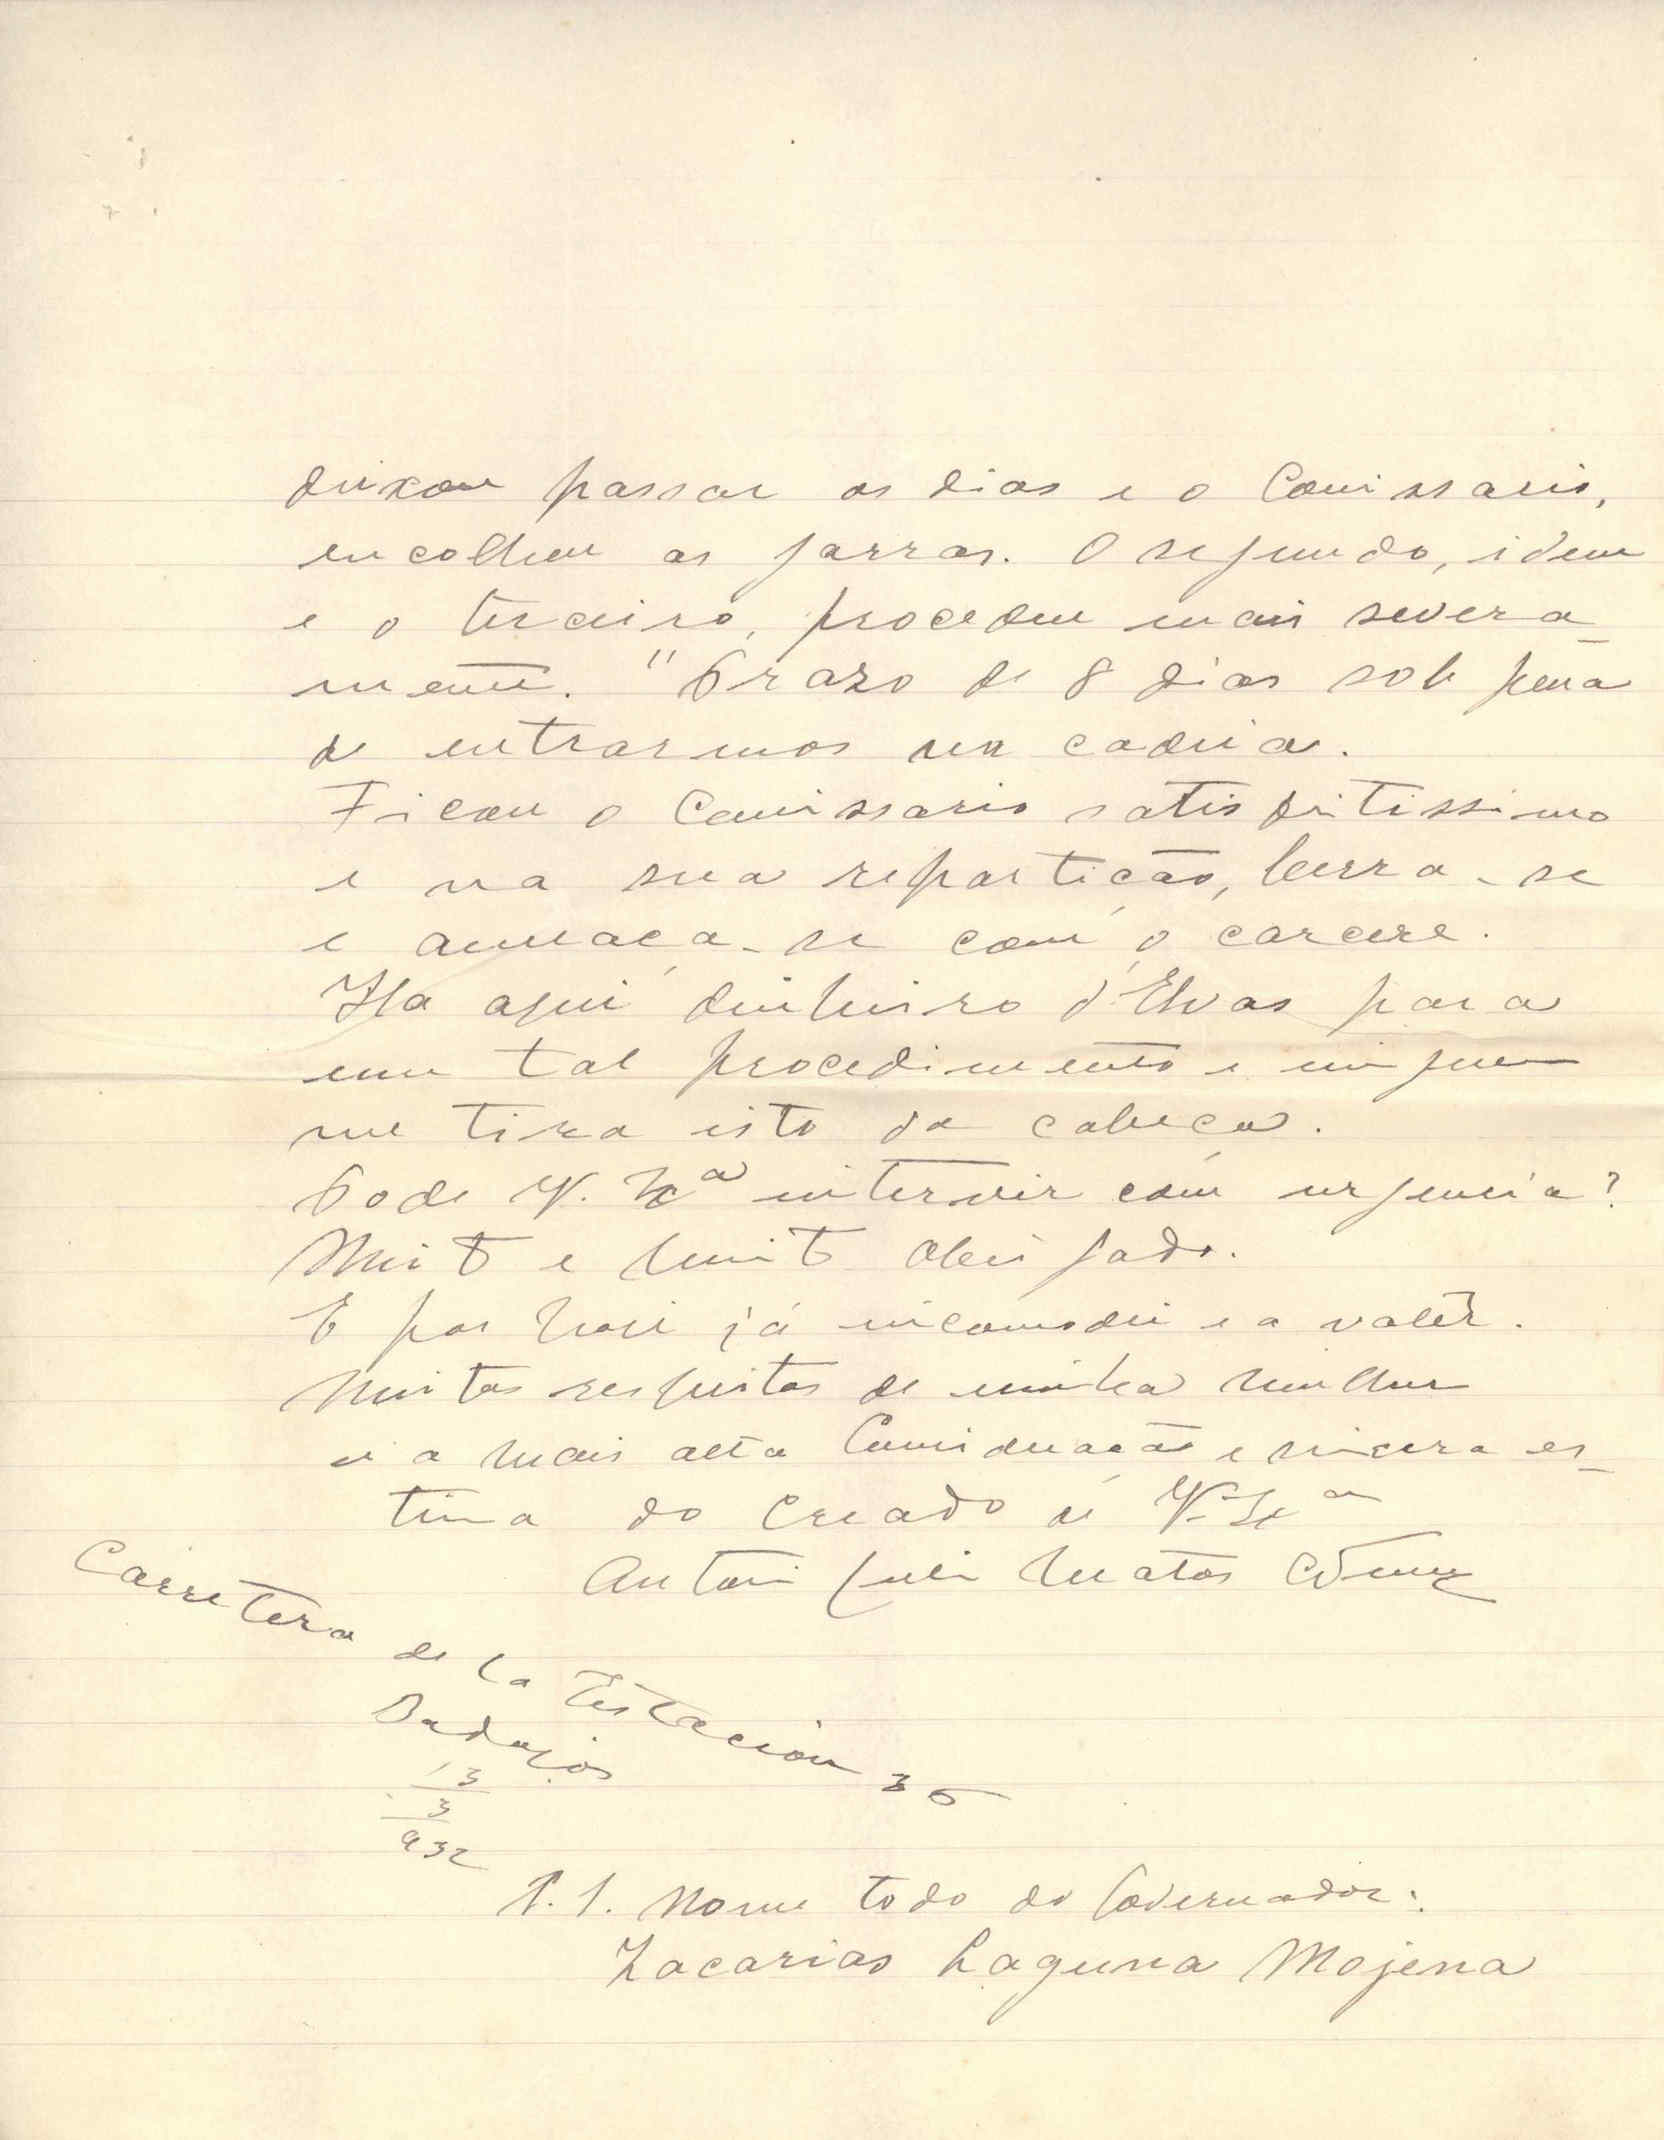 deixou passar os dias e o Comissario,
encolheu as garras. O segundo, idem
e o terceiro, procedeu mais severa-
mente. "Prazo de 8 dias sob pena
de entrarmos na cadeia.
Ficou o Comissario satisfeitissimo
e na sua repartição, berra-se
e ameaça-se com o carcere.
Ha aqui dinheiro d'Elvas para
um tal procedimento e ninguem
me tira isto da cabeça.
Pode V. Exª intervir com urgencia?
Muito e muito obrigado.
E por hoje já incomodei e a valêr.
Muitos respeitos de minha mulher
e a mais alta Consideração e sincera es-
tima do creado de V. Exª
Antonio Matos
Carretera de la Estación 36
Badajós
13
3
932
P.S. Nome todo do Governador:
Zacarias Laguna Mojena